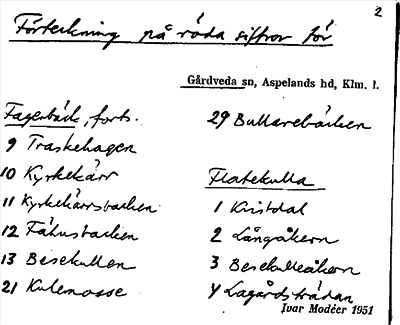 2
Förteckning på röda siffror för
Gårdveda sn, Aspelands hd, Klm. l.
Fagerbäck, forts.
9 Traskehagen
10 Kyrkekärr
11 Kyrkekärrsbacken
12 Fähusbacken
13 Besekullen
21 Kulemosse
29 Bullarebäcken
Flatekulla
1 Kristdal
2 Långåkern
3 Besekulleåkern
4 Lagårdsträdan
Ivar Modéer 1951